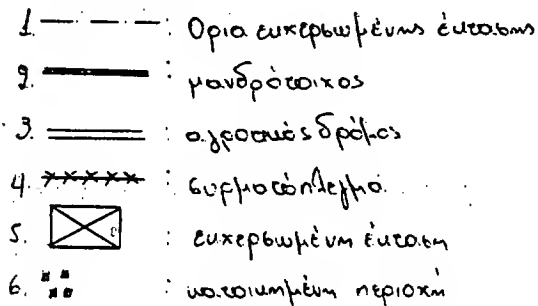 1. : Όρια εκχερσωμένης έκτασης
2. : μανδρότοιχος
3. : αγροτικός δρόμος
4. : συρματόπλεγμα.
5. : εκχερσωμένη έκταση
6. : κατοικημένη περιοχή